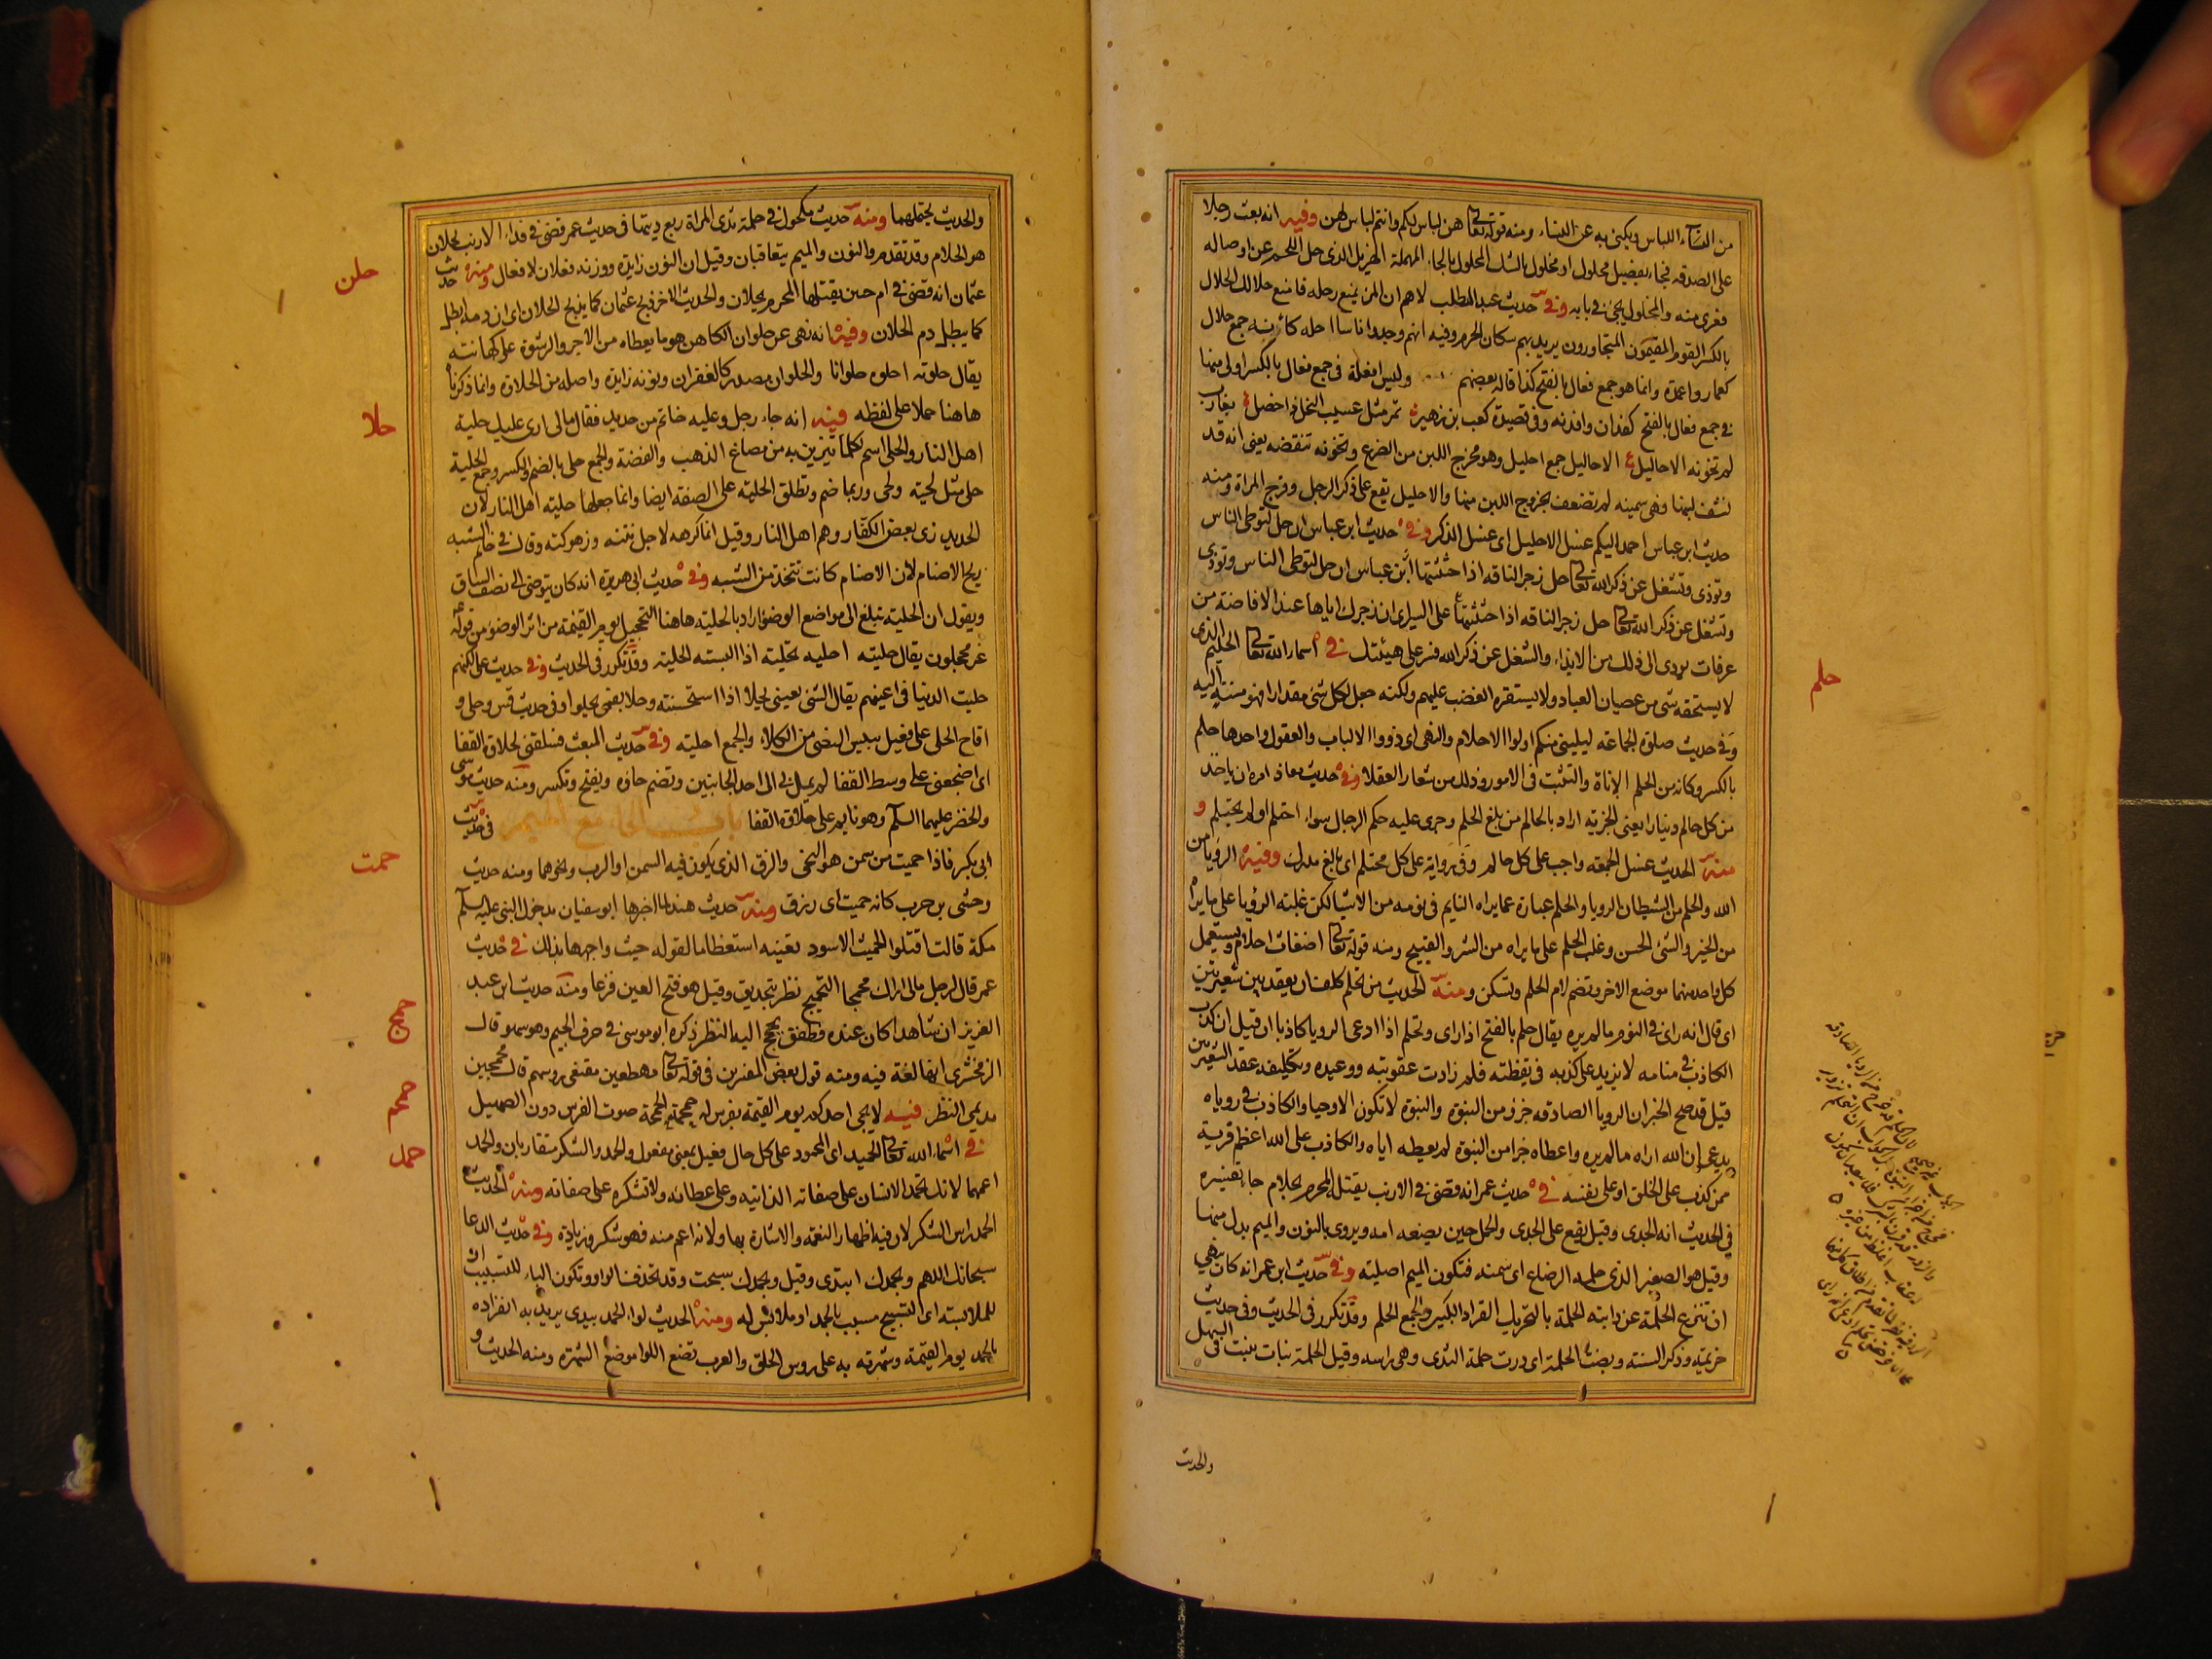 من النساء اللباس ويكنى به عن النساء ومنه قوله تعالى هن لباس لكم وانتم لباس لهن وفيه انه بعث رجلا
على الصدقه فجاء بفصيل محلول او مخلول بالشك المحلول بالحاء المهملة الهزيل الذى حل اللحم عن اوصاله
فعرى منه والمخلول يجئ فى بابه وفى حديث عبد المطلب لاهم ان المرء يمنع رحله فامنع حلالك الحلال
بالكسر القوم المقيمون المتجاورون يريد بهم سكان الحرم وفيه انهم وجدوا ناسا احله كانه جمع حلال
كعماد واعمدة وانما هو جمع فعال بالفتح كذا قاله بعضهم وليس افعلة فى جمع فعال بالكسر اولى منها
فى جمع فعال بالفتح كفدان وافدنه وفى قصيدة كعب بن زهير تمر مثل عسيب النخل ذا خصل بغارب
لم تخونه الاحاليل الاحاليل جمع احليل وهو مخرج اللبن من الضرع وتخونه تنقصه يعنى انه قد
نشف لبنها فهى سمينه لم تضعف بخروج اللبن منها والاحليل يقع على ذكر الرجل وفرج المراة ومنه
حديث ابن عباس احمد اليكم غسل الاحليل اى غسل الذكر وفى حديث ابن عباس ان حل لتوطى الناس
وتوذى وتشغل عن ذكر الله تعالى حل زجر الناقه اذا حثثتها ابن عباس ان حل لتوطى الناس وتوذى
وتشغل عن ذكر الله تعالى حل زجر الناقه اذا حثثتها على السير اى ان زجرك اياها عند الافاضة من
عرفات يودى الى ذلك من الايذاء والشغل عن ذكر الله فسر على هيئتك فى اسماء الله تعالى الحليم الذى
لا يستخفه شى من عصيان العباد ولا يستفزه الغضب عليهم ولكنه جعل لكل شئ مقدارا فهو منته اليه
وفى حديث صلوة الجماعة ليلينى منكم اولوا الاحلام والنهى اى ذووا الالباب والعقول واحدها حلم
بالكسر وكانه من الحلم الاناة والتثبت فى الامور وذلك من شعار العقلا وفى حديث معاذ امره ان ياخذ
من كل حالم دينارا يعنى الجزية اراد بالحالم من بلغ الحلم وجرى عليه حكم الرجال سواء احتلم او لم يحتلم و
منه الحديث غسل الجمعه واجب على كل حالم وفى رواية على كل محتلم اى بالغ مدرك وفيه الرويا من
الله والحلم من الشيطان الرويا والحلم عبارة عما يراه النايم فى نومه من الاشيا لكن غلبت الرؤيا على ما يراه
من الخير والشئ الحسن وغلب الحلم على ما يراه من الشر والقبيح ومنه قوله تعالى اضغاث احلام ويستعمل
كل واحد منهما موضع الاخر وتضم لام الحلم وتسكن ومنه الحديث من تحلم كلف ان يعقد بين شعيرتين
اى قال انه راى فى النوم ما لم يره يقال حلم بالفتح اذا راى وتحلم اذا ادعى الرويا كاذبا ان قيل ان كذب
الكاذب فى منامه لا يزيد على كذبه فى يقظته فلم زادت عقوبته ووعيده وتكليفه عقد الشعيرتين
قيل قد صح الخبر ان الرويا الصادقه جزء من النبوة والنبوة لا تكون الا وحيا والكاذب فى روياه
يدعى ان الله اراه ما لم يره واعطاه جزا من النبوة لم يعطه اياه والكاذب على الله اعظم فرية
ممن كذب على الخلق او على نفسه فى حديث عمر انه قضى فى الارنب يقتله المحرم بحلام جاء تفسيره
فى الحديث انه الجدى وقيل يقع على الجدى والحمل حين يضعه امه ويروى بالنون والميم بدل منها
وقيل هو الصغير الذى حلمه الرضاع اى سمنه فتكون الميم اصلية وفى حديث ابن عمر انه كان ينهى
ان تنزع الحلمة عن دابته الحلمة بالتحريك القراد الكبير والجمع الحلم وقد تكرر فى الحديث وفى حديث
خزيمة وذكر السنة وبضت الحلمة اى درت حلمة الثدى وهى راسه وقيل الحلمة نبات ينبت فى السهل
والحديث
حلم
والحديث يحتملهما ومنه حديث مكحول فى حلمة ثدى المراة ربع ديتها فى حديث عمر قضى فى فداء الارنب بحلان
هو الحلام وقد تقدم والنون والميم يتعاقبان وقيل ان النون زايدة ووزنه فعلان لا فعال ومنه حديث
عثمان انه قضى فى ام حبين يقتلها المحرم بحلان والحديث الاخر ذبح عثمان كما يذبح الحلان اى ان دمه ابطل
كما يبطل دم الحلان وفيه انه نهى عن حلوان الكاهن هو ما يعطاه من الاجر والرشوة على كهانته
يقال حلوته احلوه حلوانا والحلوان مصدر كالغفران ونونه زايدة واصله من الحلاوة وانما ذكرناه
هاهنا حملا على لفظه فيه انه جاء رجل وعليه خاتم من حديد فقال مالى ارى عليك حلية
اهل النار والحلى اسم لكل ما يتزين به من مصاغ الذهب والفضة والجمع حلى بالضم والكسر وجمع الحلية
حلى مثل لحية ولحى وربما ضم وتطلق الحلية على الصفه ايضا وانما جعلها حلية اهل النار لان
الحديد زى بعض الكفار وهم اهل النار وقيل انما كرهه لاجل نتنه وزهوكته وقال فى خاتم الشبه
ريح الاصنام لان الاصنام كانت تتخذ من الشبه وفى حديث ابى هريرة انه كان يتوضى الى نصف الساق
ويقول ان الحلية تبلغ الى مواضع الوضوء اراد بالحلية هاهنا التحجيل يوم القيمة من اثر الوضوء من قوله
غر محجلون يقال حليته احليه تحلية اذا البسته الحلية وقد تكرر فى الحديث وفى حديث على لكنهم
حليت الدنيا فى اعينهم يقال حلى الشئ بعينى يحلا اذا استحسنته وحلا بفمى يحلو وفى حديث قس وحلى و
اقاح الحلى على فعيل يبيس النصى من الكلاء والجمع احلية وفى حديث المبعث فسلقنى لحلاوة القفا
اى اضجعنى على وسط القفا لم يمل بى الى احد الجانبين وتضم حاؤه ويفتح وتكسر ومنه حديث موسى
والخضر عليهما السلم وهو نايم على حلاوة القفا باب الحاء مع الميم فى حديث
ابى بكر فاذا حميت من سمن هو النحى والزق الذى يكون فيه السمن او الرب ونحوهما ومنه حديث
وحشى بن حرب كانه حميت اى زق ومنه حديث هند لما اخبرها ابو سفيان بدخول النبى عليه السلم
مكة قالت اقتلوا الحميت الاسود تعنيه استعظاما لقوله حيث واجهها بذلك فى حديث
عمر قال لرجل مالى اراك محمجا التحميج نظر بتحديق وقيل هو فتح العين فزعا ومنه حديث ابن عبد
العزيز ان شاهدا كان عنده فطفق يحمج اليه النظر ذكره ابو موسى فى حرف الجيم وهو سهو وقال
الزمخشرى انها لغة فيه ومنه قول بعض المفسرين فى قوله تعالى مهطعين مقنعى روسهم قال محمجين
مديمى النظر فيه لا يجى احدكم يوم القيمة بفرس له حمحمة الحمحمة صوت الفرس دون الصهيل
فى اسماء الله تعالى الحميد اى المحمود على كل حال فعيل بمعنى مفعول والحمد والشكر متقاربان والحمد
اعمهما لانك تحمد الانسان على صفاته الذاتية وعلى عطائه ولا تشكره على صفاته ومنه الحديث
الحمد راس الشكر لان فيه اظهار النعمه والاشارة بها ولانه اعم منه فهو شكر وزيادة وفى حديث الدعا
سبحانك اللهم وبحمدك ابتدى وقيل وبحمدك سبحت وقد تحذف الواو وتكون الباء للتسبيب او
للملابسة اى التسبيح مسبب بالحمد او ملابس له ومنه الحديث لواء الحمد بيدى يريد به انفراده
بالحمد يوم القيمة وشهرته به على روس الخلق والعرب تضع اللوا موضع الشهرة ومنه الحديث و
حلن
حلا
حمت
حمج
حمحم
حمد